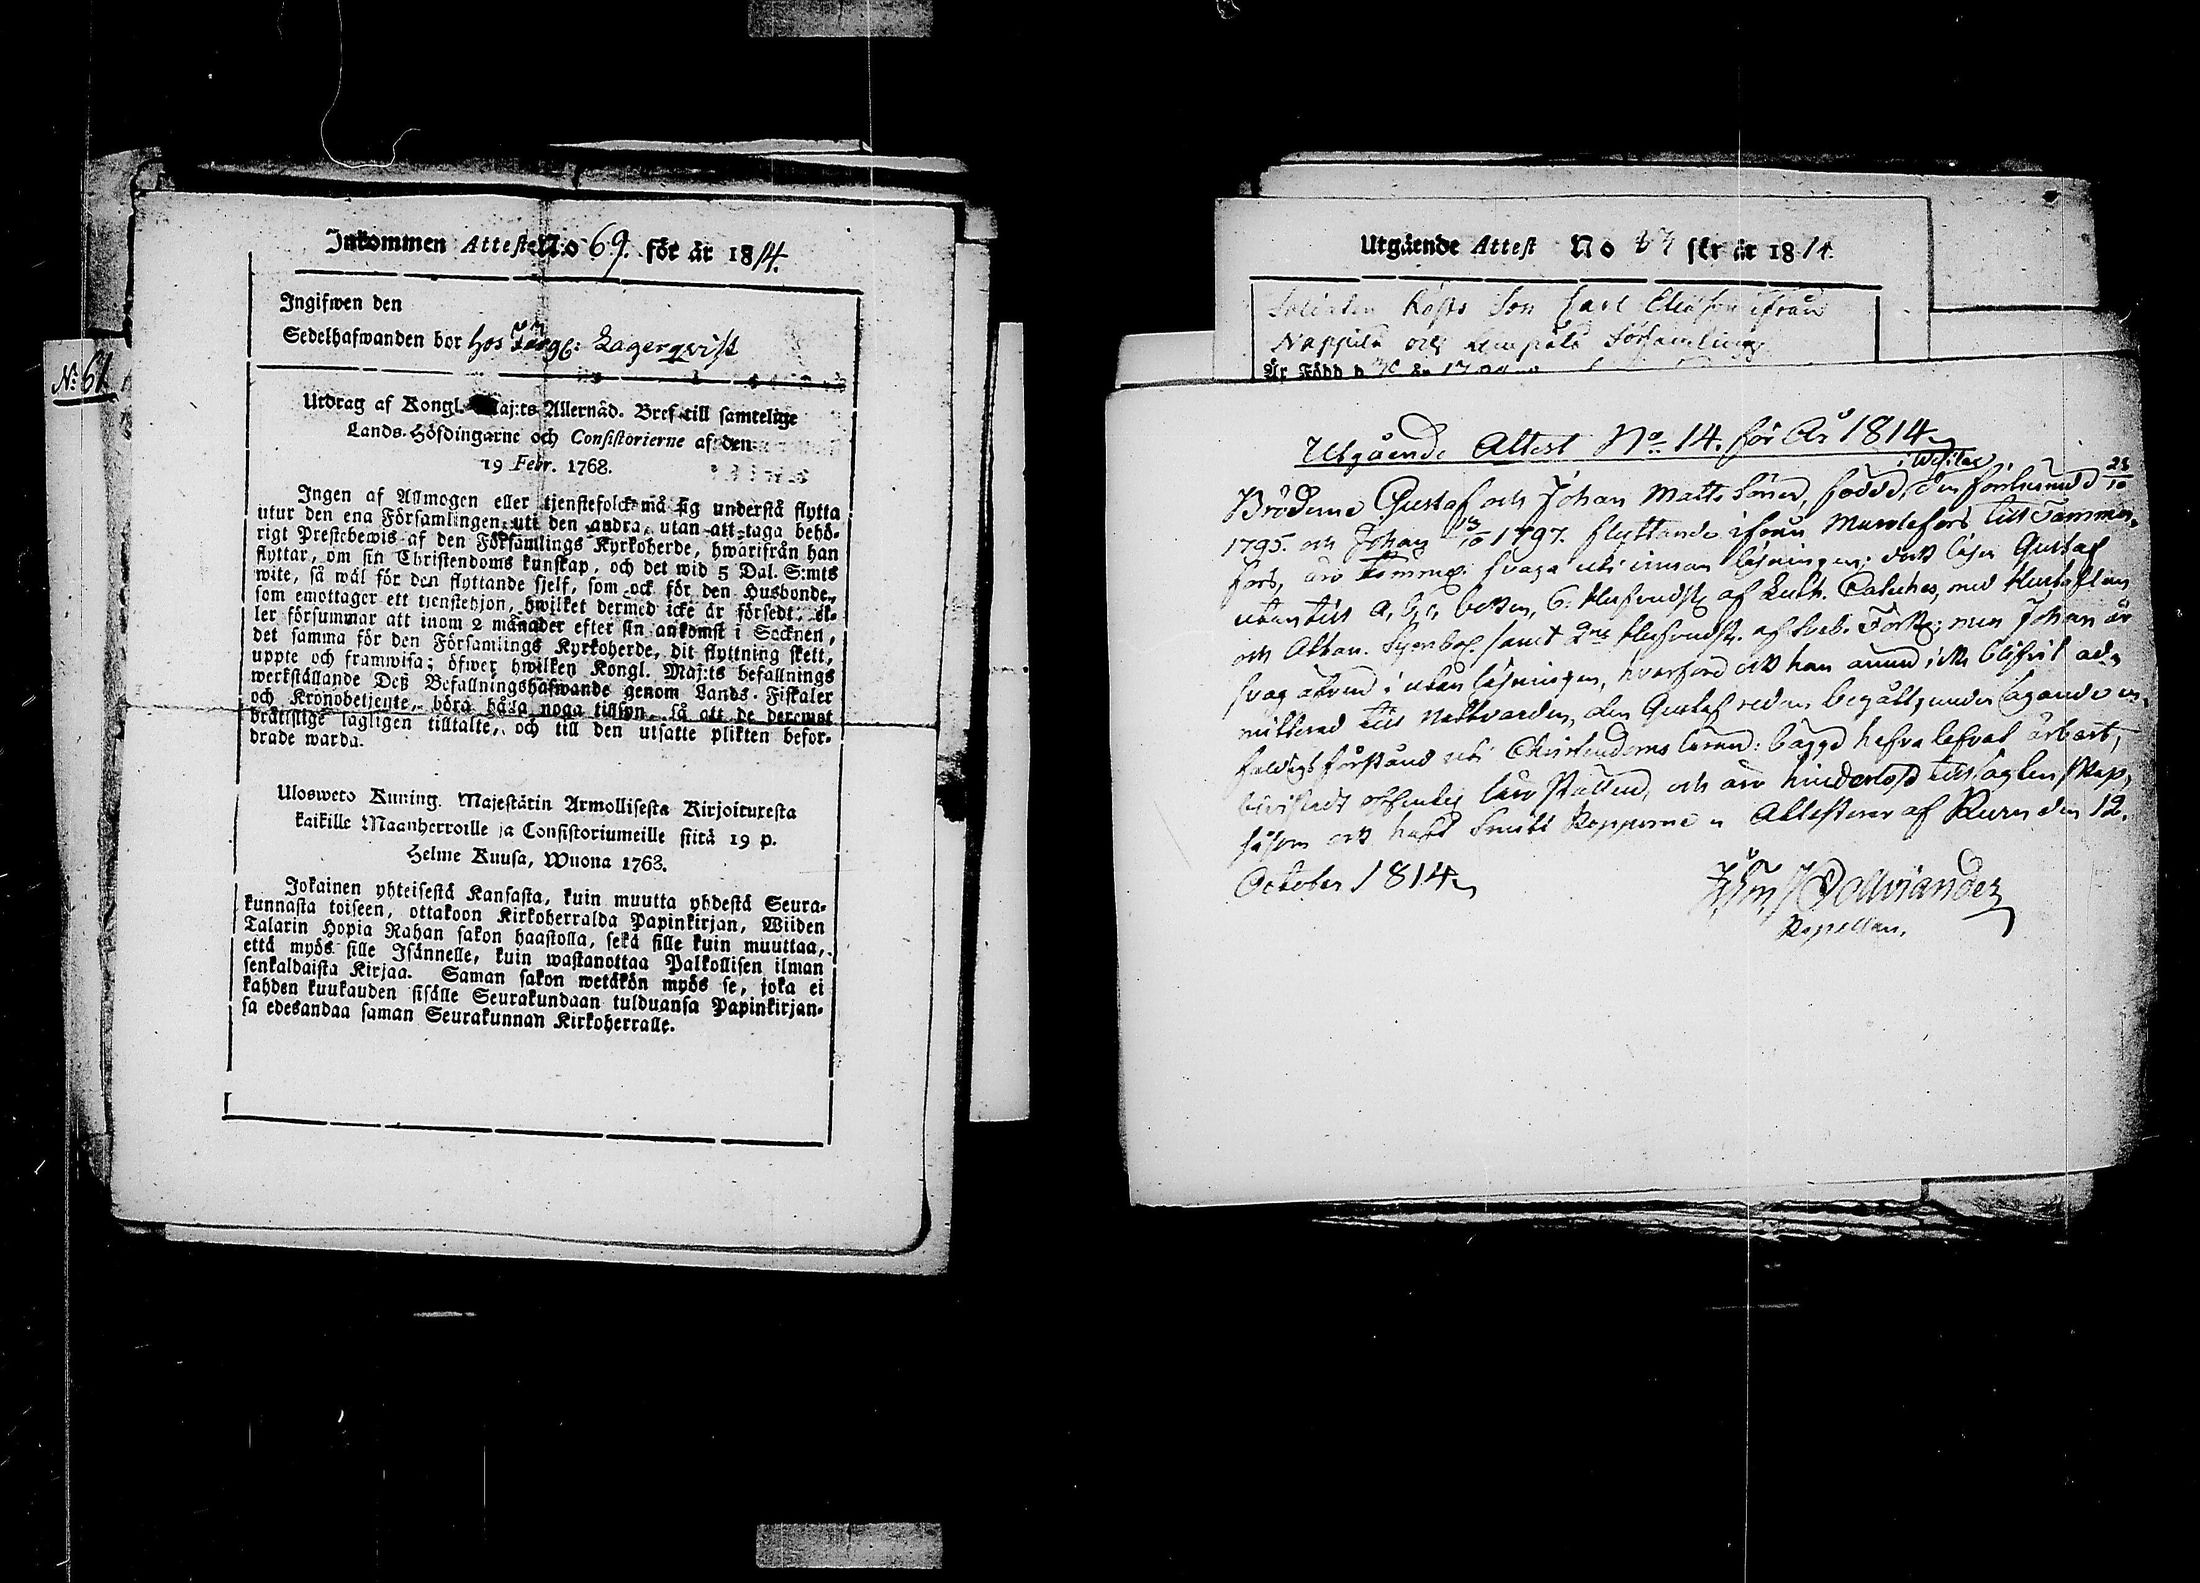 Inkommen Attest No 69. för år 1814.
Ingifwen den
Sedelhafwanden bor hos Lagerqvist
N: 61.
Utdrag af Kongl. Maj:ts Allernåd. Bref till samtelige
Lands-Höfdingarne och Consistorierne af den
19 Febr. 1768.
Ingen af Allmogen eller tjenstefolck må sig understå flytta
utur den ena Församlingen uti den andra, utan att taga behö-
rigt Prestebewis af den Församlings Kyrkoherde, hwarifrån han
flyttar, om sin Christendoms kunskap, och det wid 5 Dal. S:mts
wite, så wäl för den flyttande sjelf, som ock för den Husbonde,
som emottager ett tjenstehjon, hwilket dermed icke är försedt, el-
ler försummar att inom 2 månader efter sin ankomst i Socknen,
det samma för den Församlings Kyrkoherde, dit flyttning skett,
uppte och framwisa; öfwer hwilken Kongl. Maj:ts befallnings
werkställande Deß Befallningshafwande genom Lands-Fiskaler
och Kronobetjente, böra håla noga tillsyn, så att de deremot
brättslige lagligen tilltalte, och till den utsatte plikten befor-
drade warda.
Uloswetо Kuning. Majestätin Armollisesta Kirjoituxesta
kaikille Maanherroille ja Consistoriumeille siitä 19 p.
Helme Kuusa, Wuona 1768.
Jokainen yhteisestä Kansasta, kuin muutta yhdestä Seura-
kunnasta toiseen, ottakoon Kirkoherralda Papinkirjan, Wiiden
Talarin Hopia Rahan sakon haastolla, sekä sille kuin muuttaa,
että myös sille Isännelle, kuin wastanottaa Palkollisen ilman
senkaldaista Kirjaa. Saman sakon wetäkön myös se, joka ei
kahden kuukauden sisälle Seurakundaan tulduansa Papinkirjan-
sa edesandaa saman Seurakunnan Kirkoherralle.
Utgående Attest No för år 1814.
Soldaten Son Carl ifrån
Nappila och Lempälä Församling
Är Född
Utgående Attest No 14. för År 1814.
i Wesilax
Bröderne Gustaf och Johan Matts Söner, födde, den förstnemnde 28/10
1795. och Johan 13/10 1797. flyttande ifrån till Tammer-
fors, äro svaga uti innan läsningen; dock läser Gustaf
utantill A, b, c, boken, 6 Hufvudst. af Luth. Cateches, med Hustaflan
och Athan. Symbol. samt 2ne Hufvudst. af Sveb. Förkl: men Johan är
svag äfven i utan läsningen, hvarföre ock han ännu icke blifvit ad-
mitterad till Nattvarden, den Gustaf redan begått,
förstånd uti Christendoms läran: bägge hafva lefvat ärbart,
bivistadt offentlig läro ställen, och äro hinderlöse till ägtenskap,
såsom ock haft Smitt Kopporne. Attesterar af den 12.
October 1814.
Kapellan.